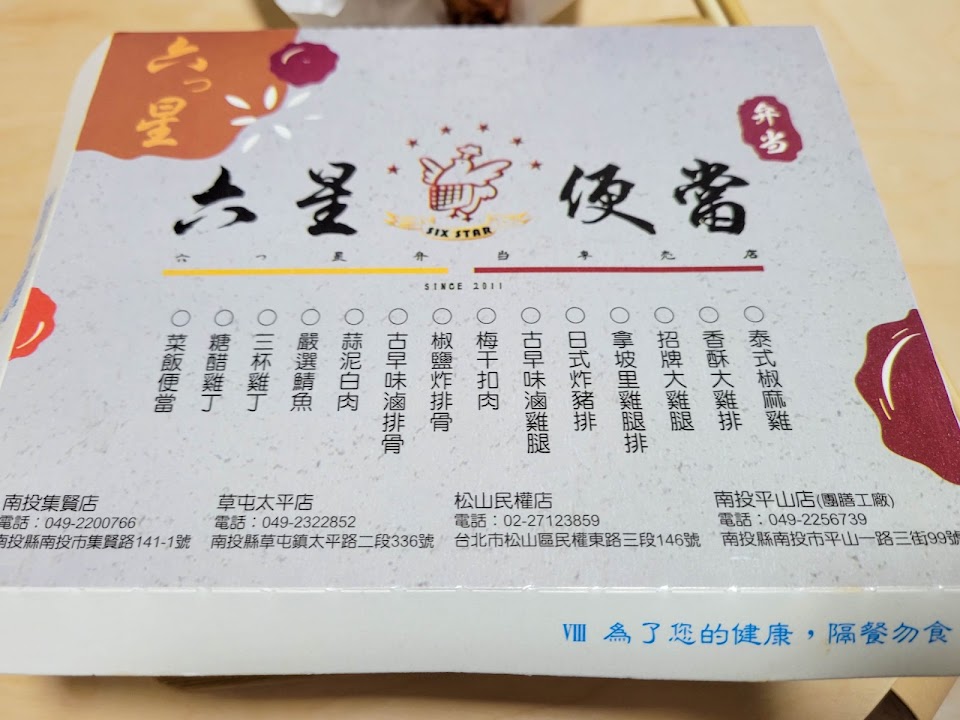 六つ星
弁当
六星便當
SIX STAR
六つ星弁当専売店
SINCE 2011
○泰式椒麻雞
○香酥大雞排
○招牌大雞腿
○拿坡里雞腿排
○日式炸豬排
○古早味滷雞腿
○梅干扣肉
○椒鹽炸排骨
○古早味滷排骨
○蒜泥白肉
○嚴選鯖魚
○三杯雞丁
○糖醋雞丁
○菜飯便當
南投集賢店
電話：049-2200766
南投縣南投市集賢路141-1號
草屯太平店
電話：049-2322852
南投縣草屯鎮太平路二段336號
松山民權店
電話：02-27123859
台北市松山區民權東路三段146號
南投平山店(團膳工廠)
電話：049-2256739
南投縣南投市平山一路三街99號
VIII 為了您的健康，隔餐勿食